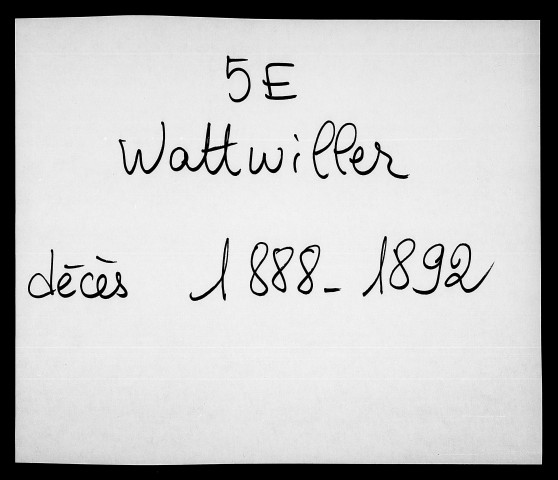 5E
Wattwiller
décès 1888-1892